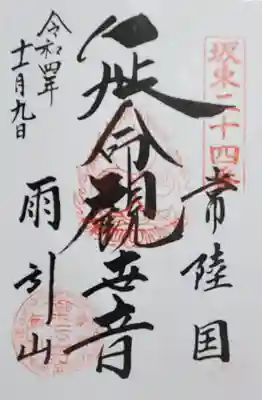 坂東二十四番
常陸国
延命観世音
雨引山
令和四年
十二月九日